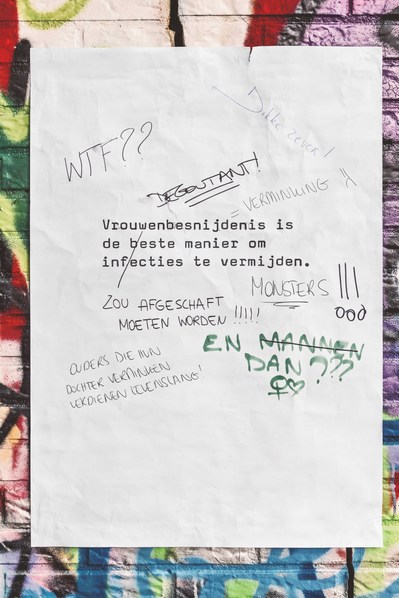 Dikke zever!
WTF??
DEGOUTANT!
= VERMINKING
Vrouwenbesnijdenis is
de beste manier om
infecties te vermijden.
MONSTERS !!!
ZOU AFGESCHAFT
MOETEN WORDEN !!!!!
EN MANNEN
DAN???
OUDERS DIE HUN
DOCHTER VERMINKEN
VERDIENEN LEVENSLANG!